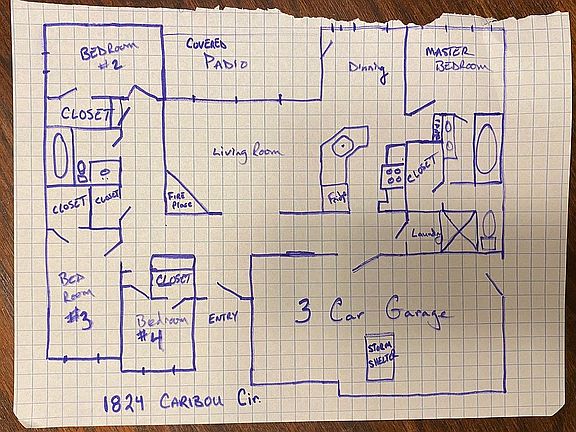 BEDROOM
#2
COVERED
PADIO
Dinning
MASTER
BEDROOM
CLOSET
Living Room
CLOSET
Fire
Place
Fridg
CLOSET
CLOSET
Laundry
BED
ROOM
#3
CLOSET
Bedroom
#4
ENTRY
3 Car Garage
STORM
SHELTER
1824 CARIBOU Cir.